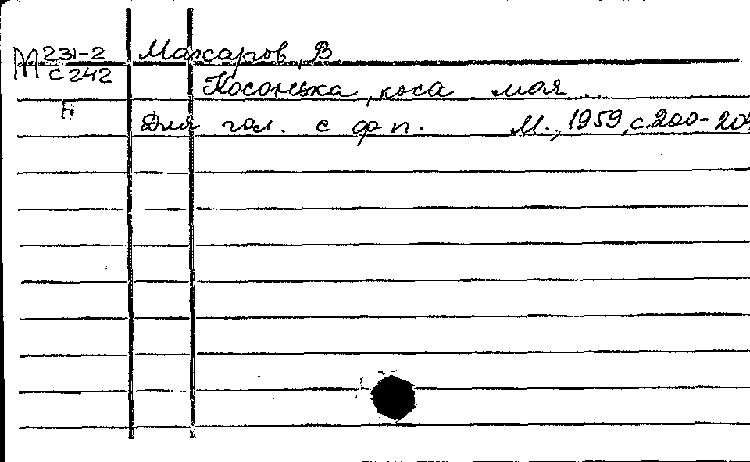 М 231-2
С 242
Макаров, В.
Косонька, коса моя...
Для гол. с фп. М., 1959, с. 200-202